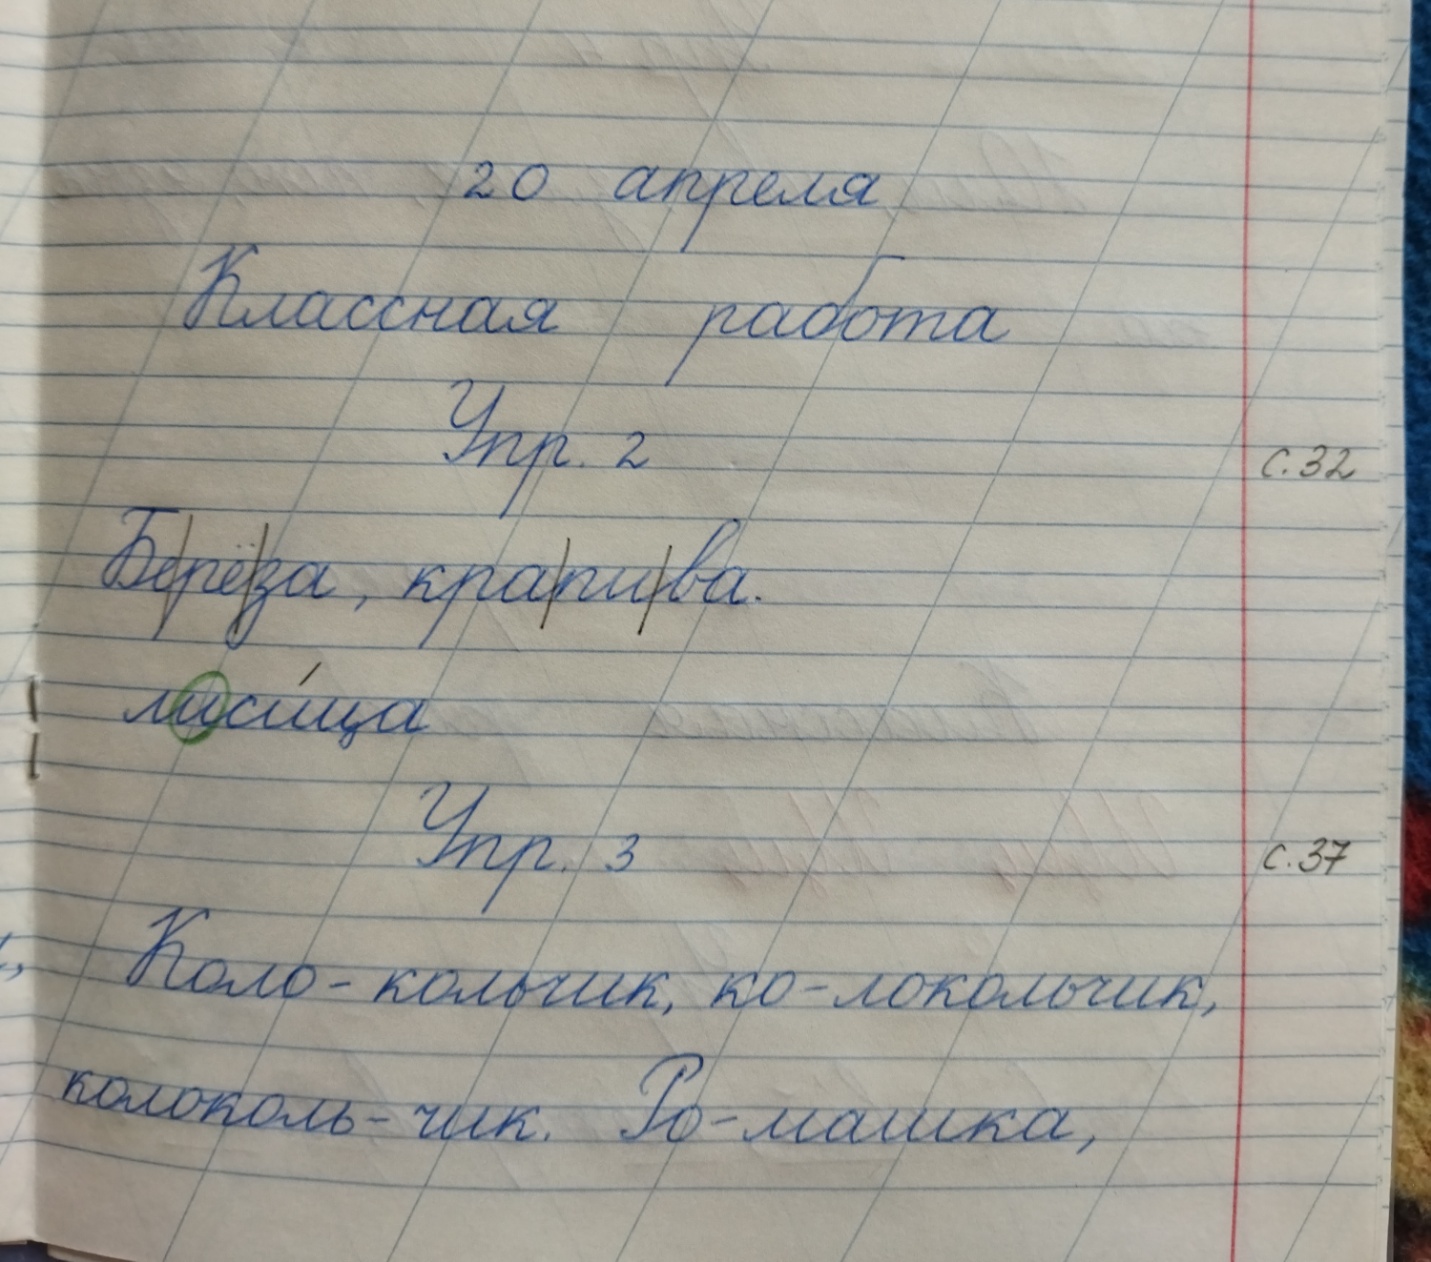 20 апреля
Классная работа
Упр. 2 с. 32
Бе|рё|за, кра|пи|ва.
лиси́ца
Упр. 3 с. 37
Коло-кольчик, ко-локольчик,
колоколь-чик. Ро-машка,